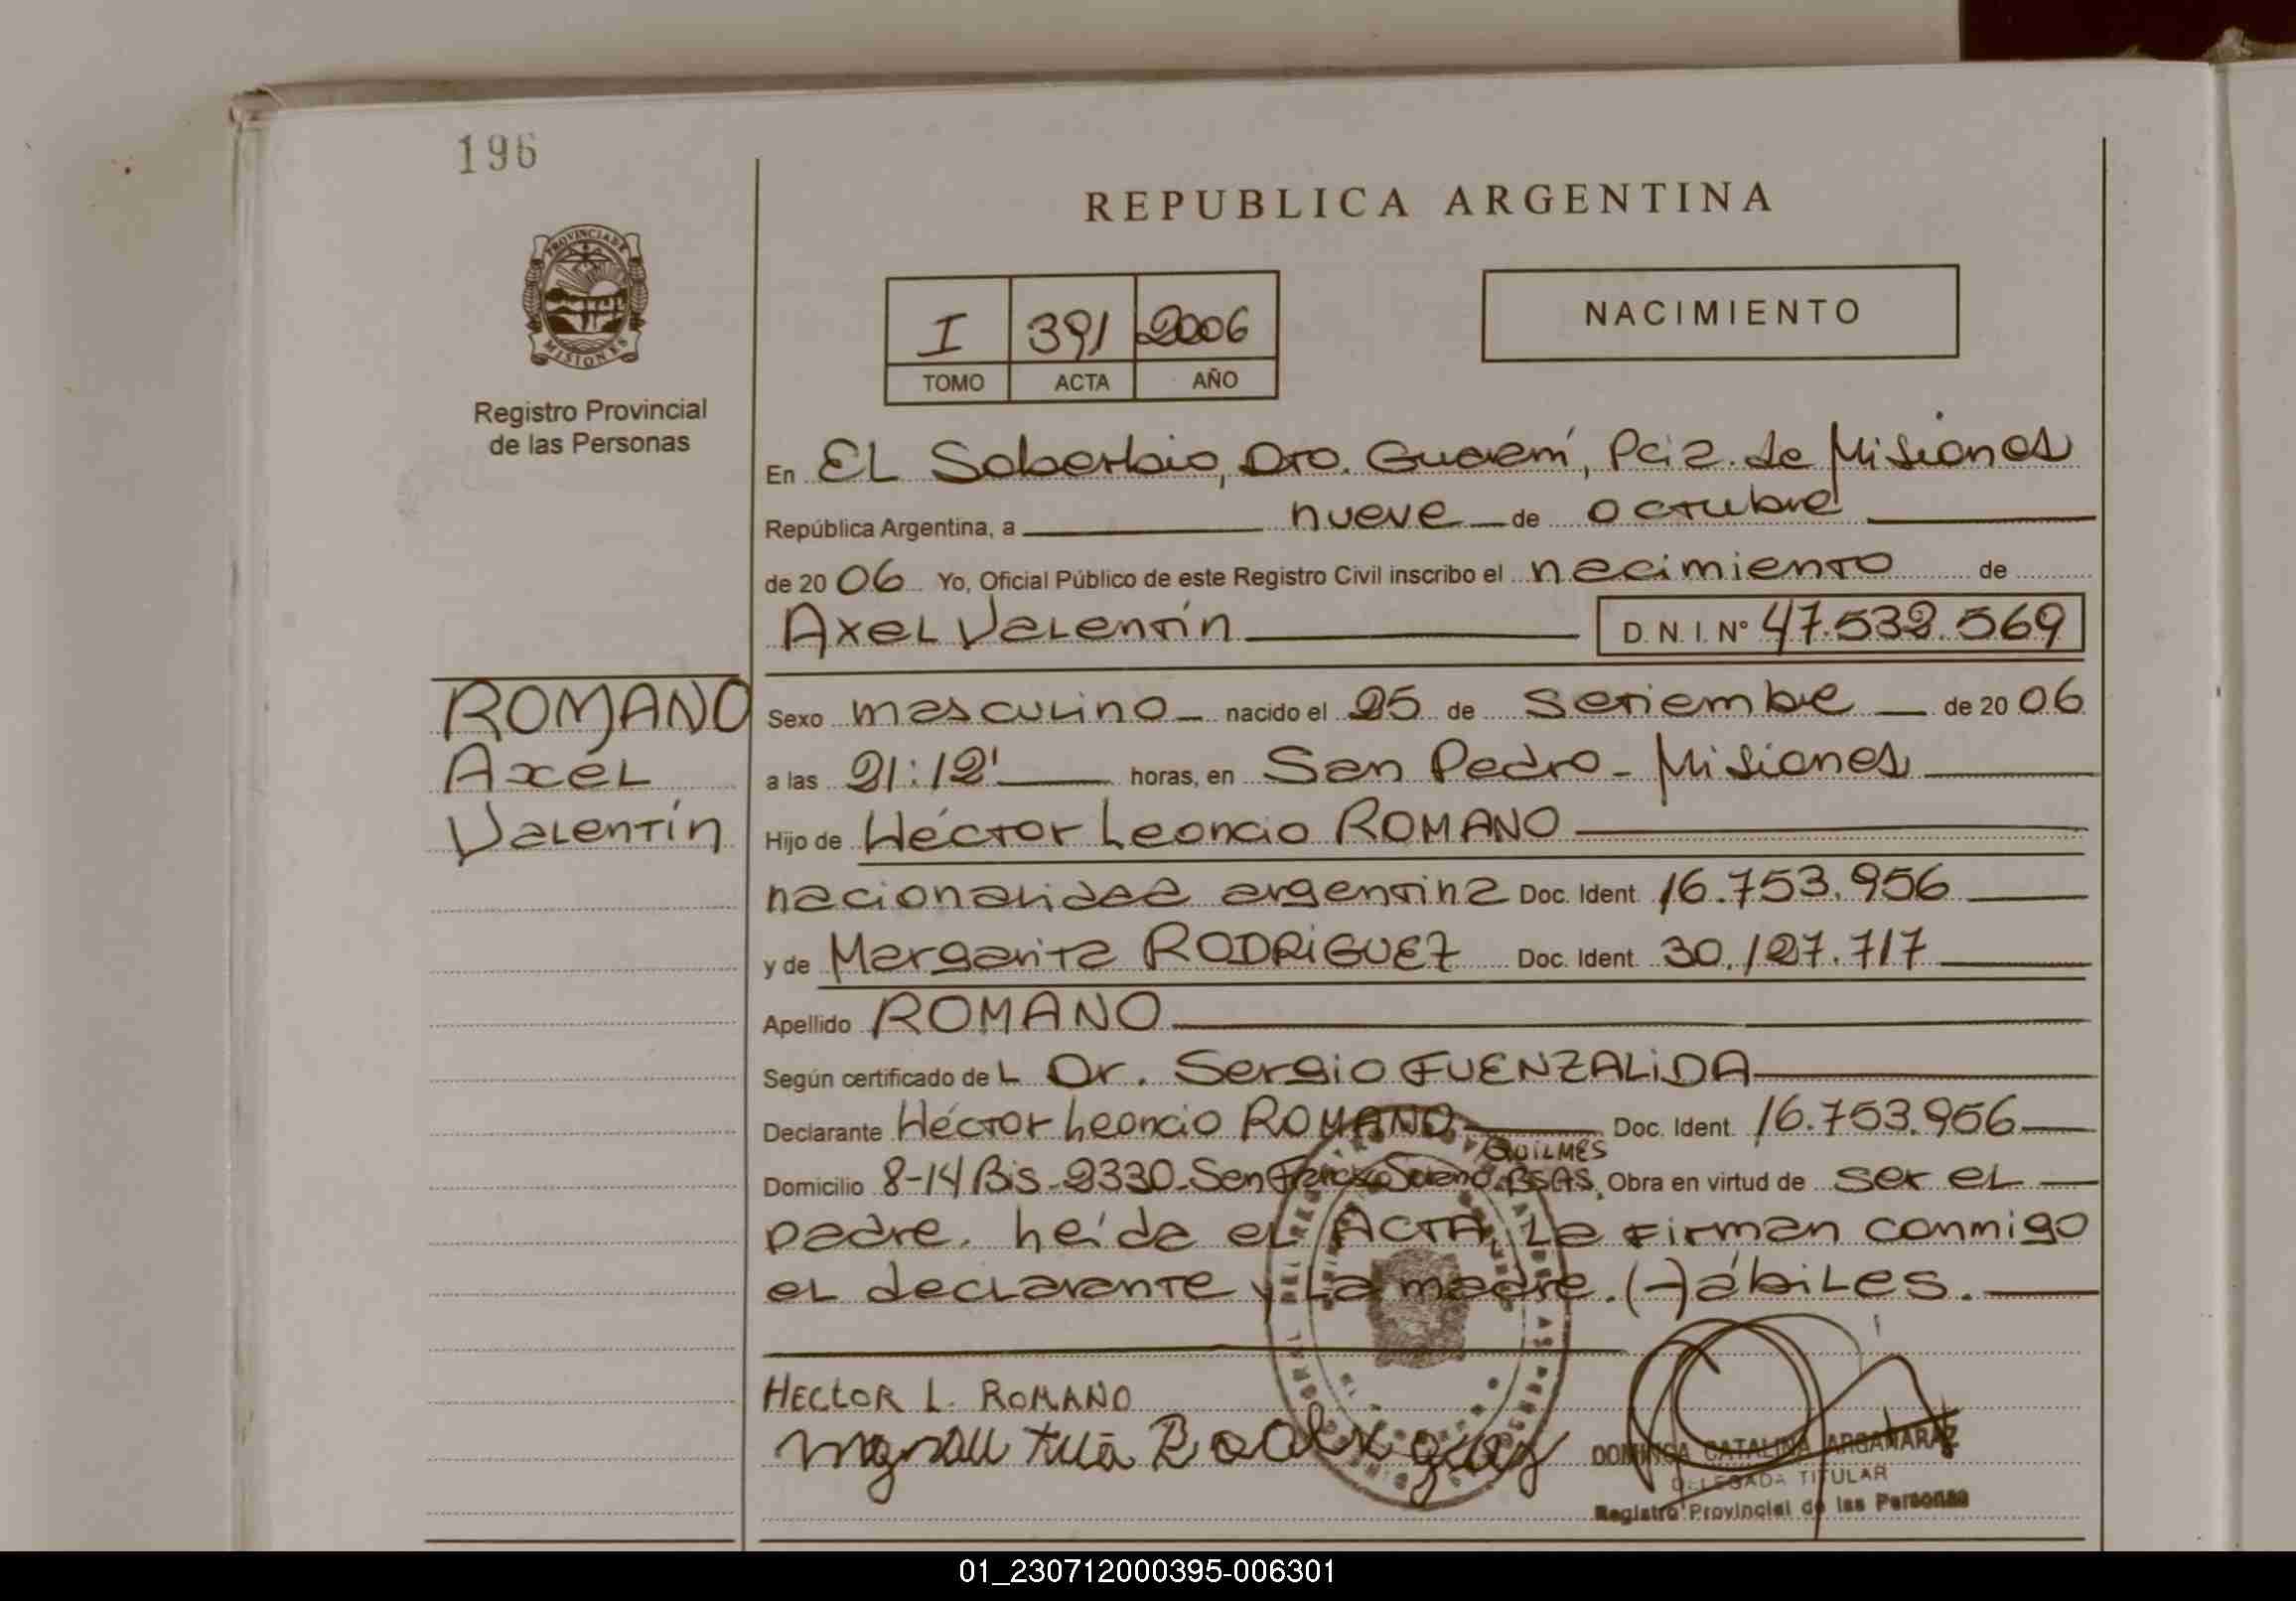 196
REPUBLICA ARGENTINA
PROVINCIA DE
MISIONES
Registro Provincial
de las Personas
I 391 2006
TOMO ACTA AÑO
NACIMIENTO
En EL Soberbio, Dto. Guaraní, Pcia. de Misiones
República Argentina, a nueve de octubre
de 2006 Yo, Oficial Público de este Registro Civil inscribo el nacimiento de
Axel Valentín D.N.I. Nº 47.532.569
ROMANO
Axel
Valentín
Sexo masculino nacido el 25 de setiembre de 2006
a las 21:12' horas, en San Pedro - Misiones
Hijo de Héctor Leoncio ROMANO
nacionalidad argentina Doc. Ident. 16.753.956
y de Margarita RODRIGUEZ Doc. Ident. 30.127.717
Apellido ROMANO
Según certificado del Dr. Sergio FUENZALIDA
Declarante Héctor Leoncio ROMANO Doc. Ident. 16.753.956
QUILMES
Domicilio 8-14 Bis-2330-San Francisco Solano-BSAS, Obra en virtud de ser el
padre. Leída el ACTA, La firman conmigo
el declarante y La madre. (-) ábiles.
HECTOR L. ROMANO
DOMINGA CATALINA ARGAÑARAZ
DELEGADA TITULAR
Registro Provincial de las Personas
01_230712000395-006301